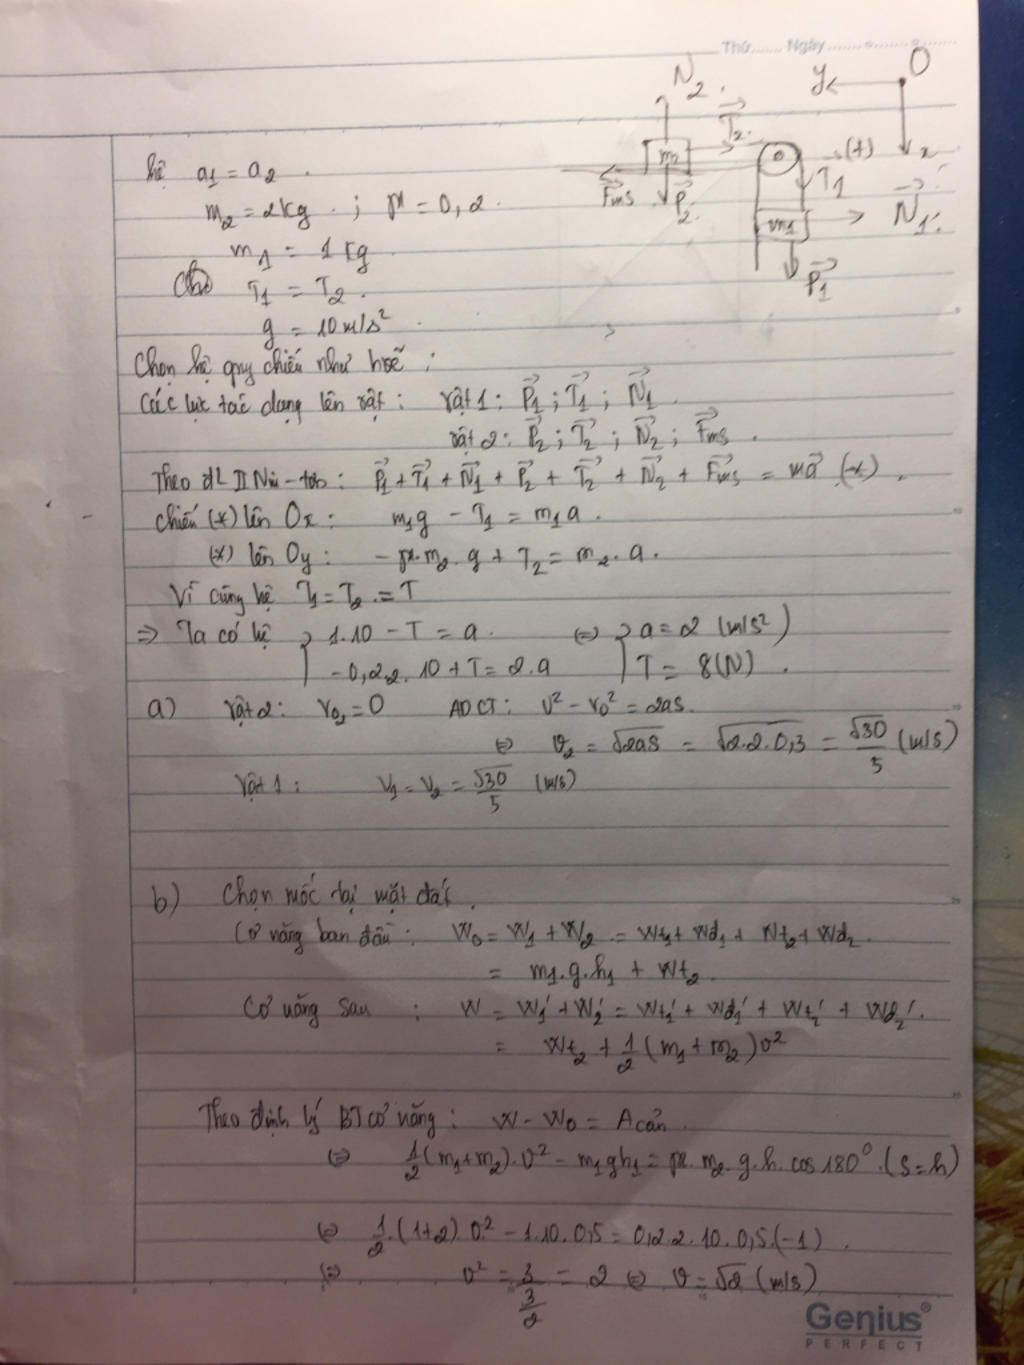 Thứ....... Ngày.......
hệ a₁ = a₂.
m₂ = 2kg ; μ = 0,2.
m₁ = 1 kg
Cho T₁ = T₂.
g = 10 m/s²
N₂
T₂
m₂
Fms
P₂
y O
x
(+)
T₁
m₁
N₁
P₁
Chọn hệ quy chiếu như hvẽ :
Các lực tác dụng lên vật : vật 1 : P₁ ; T₁ ; N₁.
vật 2 : P₂ ; T₂ ; N₂ ; Fms.
Theo ĐL II Niu-tơn : P₁ + T₁ + N₁ + P₂ + T₂ + N₂ + Fms = ma (*).
Chiếu (*) lên Ox : m₁g - T₁ = m₁a.
(*) lên Oy : - μ.m₂.g + T₂ = m₂.a.
Vì cùng hệ T₁ = T₂ = T
⇒ Ta có hệ { 1.10 - T = a. ⇔ { a = 2 (m/s²)
- 0,2.2.10 + T = 2.a T = 8(N).
a) Vật 2 : v₀₂ = 0 ADCT : v² - v₀² = 2as.
⇔ v₂ = √2as = √2.2.0,3 = √30/5 (m/s)
Vật 1 : v₁ = v₂ = √30/5 (m/s)
b) Chọn mốc tại mặt đất.
Cơ năng ban đầu : W₀ = W₁ + W₂ = Wt₁ + Wđ₁ + Wt₂ + Wđ₂.
= m₁.g.h₁ + Wt₂.
Cơ năng sau : W = W₁' + W₂' = Wt₁' + Wđ₁' + Wt₂' + Wđ₂'.
= Wt₂ + 1/2 (m₁ + m₂) v²
Theo định lý BT cơ năng : W - W₀ = A cản.
⇔ 1/2 (m₁ + m₂).v² - m₁gh₁ = μ.m₂.g.h.cos 180°.(s = h)
⇔ 1/2 .(1+2) v² - 1.10.0,5 = 0,2.2.10.0,5.(-1).
⇔ v² = 3/(3/2) = 2 ⇔ v = √2 (m/s)
Genius®
PERFECT